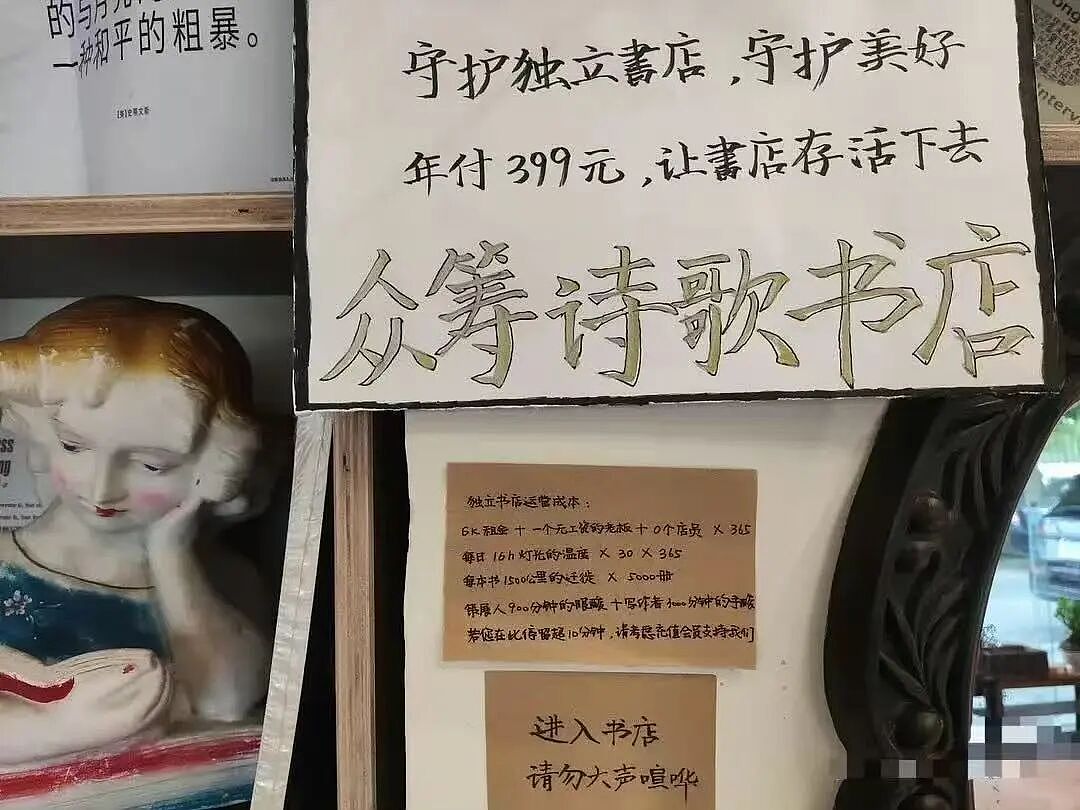 的与月光
一种和平的粗暴。
守护独立書店，守护美好
年付399元，让書店存活下去
众筹诗歌书店
独立书店运营成本：
6k租金 + 一个无工资的老板 + 0个店员 × 365
每日16h灯光的温度 × 30 × 365
每本书1500公里的迁徙 × 5000册
策展人900分钟的眼酸 + 写作者1000分钟的手酸
若您在此停留超10分钟，请考虑充值会员支持我们
进入书店
请勿大声喧哗